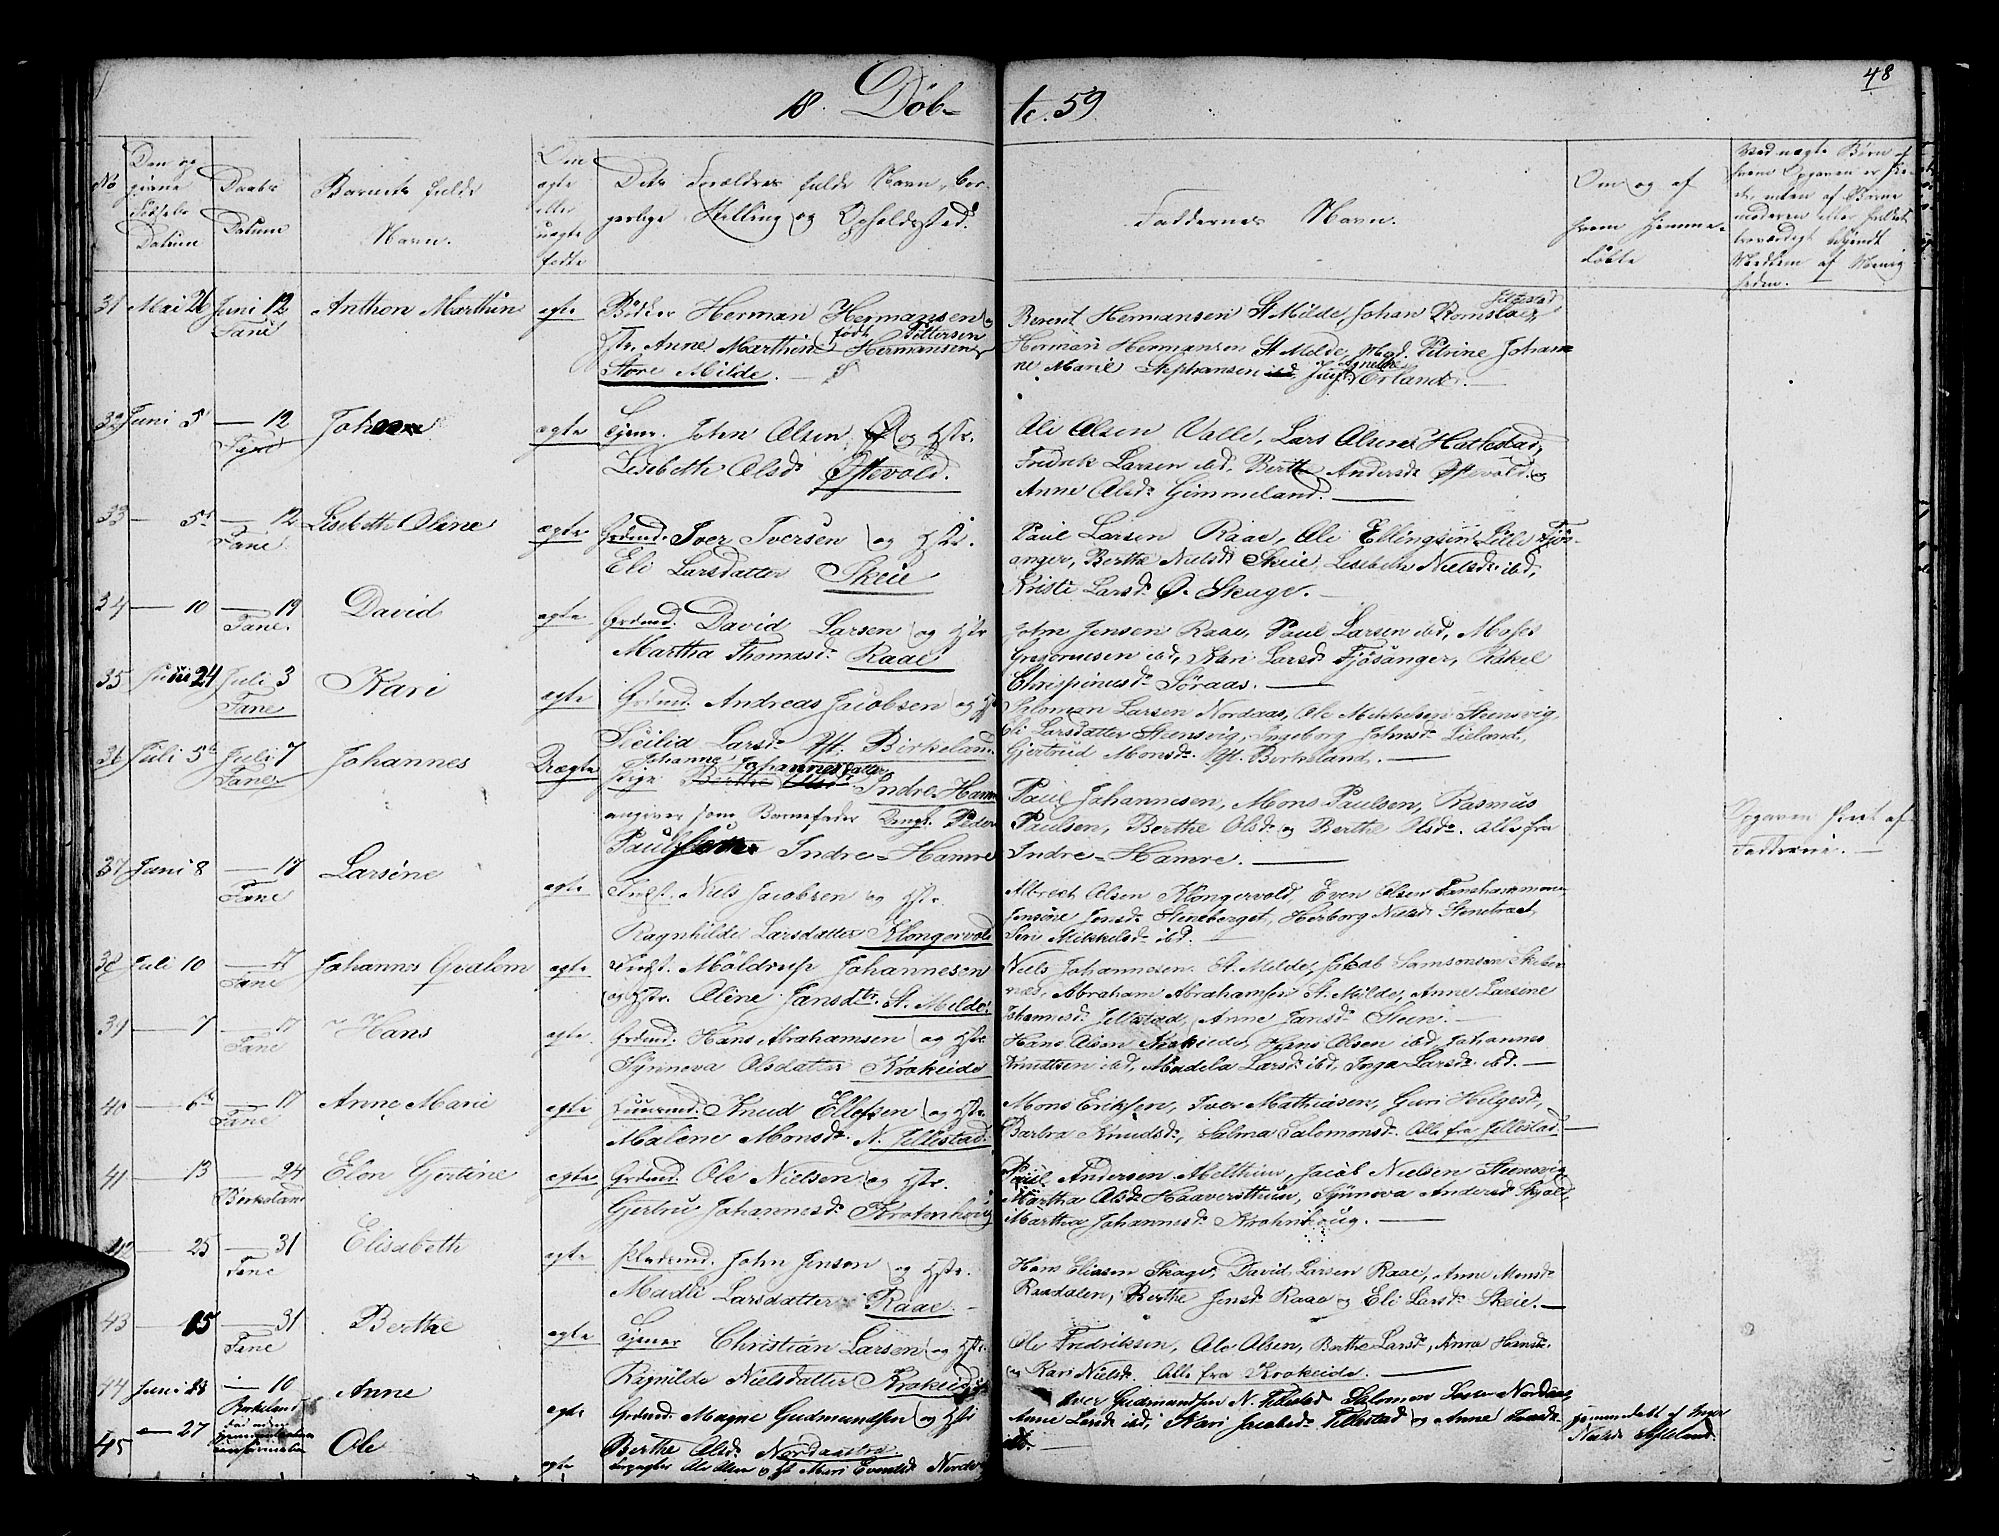 48
18 Døb- te. 59
No
Den op
givne
Fødsels
Datum
Daabs
Datum
Barnets fulde
Navn.
Om
ægte
eller
uægte
fødte
Dets Forældres fulde Navn, bor
gerlige Stilling og Opholdssted.
Faddernes Navn.
Om og af
hvem Hjemme-
døbte
Ved uægte Børn af
hvem Opgaven er ske-
et, enten af Barne
moderen eller fuldet
troværdigt bekjendt
Medlem af Menig
heden.
31 Mai 26 Juni 12 Anthon Marthin ægte Bødker Herman Hermansen og
Fane
Hstr. Anne Marthine født Pettersen Hermansen
Store Milde.
Berent Hermansen St Milde, Johan
Herman Hermansen St Milde, Mad. Petrine Johan
ne Marie Stephansen
32 Juni 5 — 12 Johan ægte Tjener. John Olsen og Hstr.
Fane
Lisebeth Olsd Østevold.
Ole Olsen Valle, Lars Olsen Hattestad,
Fredrik Larsen ibd, Berthe Andersd Østevold og
Anne Olsd. Gimmeland. —
33 — 5 — 12 Lisebeth Oline ægte Grdmd. Iver Iversen og Hstr.
Fane
Eli Larsdatter Skeie
Paul Larsen Raae, Ole Ellingsen Lille Fjøs-
anger, Berthe Nielsd Skeie, Lisebeth Nielsd. ibd,
Kristi Larsd. Ø. Skage. —
34 — 10 — 19 David ægte Grdmd. David Larsen og Hstr
Fane.
Martha Thomasd. Raae
John Jensen Raae, Paul Larsen ibd, Moses
Gregoriusen ibd, Kari Larsd. Fjøsanger, Rakel
Chrispinusd. Søraas. —
35 Juni 24 Juli 3 Kari ægte Grdmd. Andreas Jacobsen og Hstr
Fane
Sicilia Larsd. Yt. Birkeland.
Saloman Larsen Nordaas, Ole Mikkelsen Steensvig,
Eli Larsdatter Steensvig, Ingeborg Johnsd. Lieland,
Gjertrud Monsd. Yt. Birkeland. —
36 Juli 5 Juli 7 Johannes Uægte Pige Johanne Johannesdatter Indre-Hamre
Fane
angiver som Barnefader Ungk. Peder
Paulsen Indre-Hamre
Paul Johannesen, Mons Paulsen, Rasmus
Paulsen, Berthe Olsd. og Berthe Olsd. Alle fra
Indre-Hamre. —
Opgaven skeet af
Fadderne. —
37 Juni 8 — 17 Larsine ægte Indst. Niels Jacobsen og Hstr.
Fane
Ragnhilde Larsdatter Klongervold
Albreet Olsen Klongervold, Even Olsen Fanehammeren
Jensine Jensd. Steneberget, Herborg Nielsd Stenetræet,
Seri Mikkelsd. ibd. —
38 Juli 10 — 17 Johannes Gvalem ægte Indst. Møldrup Johannesen
Fane
og Hstr. Oline Jansdtr. St. Milde.
Niels Johannesen St. Milde, Jakob Samsonsen Skeber-
næs, Abraham Abrahamsen St. Milde, Anne Larsine
Johannesd. Jellestad, Anne Jansd. Steen. —
39 — 7 — 17 Hans ægte Grdmd. Hans Abrahamsen og Hstr.
Fane
Synneva Olsdatter Krokeide
Hans Olsen Krokeide, Hans Olsen ibd, Johannes
Knudtsen ibd, Madela Larsd. ibd, Inga Larsd. ibd. —
40 — 6 — 17 Anne Marie ægte Huusmd. Knud Ellefsen og Hstr
Fane
Malene Monsd. N. Jellestad.
Mons Eriksen, Iver Mathiasen, Guri Helgesd,
Barbra Knudsd., Salma Salomonsd. Alle fra Jellestad. —
41 — 13 — 24 Elen Gjertine ægte Grdmd. Ole Nielsen og Hstr.
Birkeland
Gjertru Johannesd. Krokenhoug
Paul Andersen Melthun, Jacob Nielsen Steensvig
Martha Olsd. Haaversthun, Synnova Andersd Skjold,
Martha Johannesd. Krohnhoug. —
42 — 25 — 31 Elisabeth ægte Pladsmd. John Jensen og Hstr.
Fane
Madli Larsdatter Raae. —
Hans Eliasen Skage, David Larsen Raae, Anne Monsd.
Raadalen, Berthe Jensd. Raae og Eli Larsd. Skeie. —
43 — 15 — 31 Berthe ægte Tjener Christian Larsen og Hstr.
Fane
Ragnilde Nielsdatter Krokeide
Ole Fredriksen, Ole Olsen, Berthe Larsd, Anna Hansd.
og Kari Nielsd. Alle fra Krokeide. —
44 Juni 28 — 10 Anne ægte Grdmd. Magne Gudmundsen og Hstr
Birkeland
Berthe Olsd. Nordaastræ
Iver Gudmundsen N. Tillestad Salomon Larsen Nordaas
Anne Larsd ibd, Kari Jacobsd. Tillestad og Anne
ibd. —
45 — 27 Ole ægte Ole Olsen og Hst Mari
hjemmedøbt af